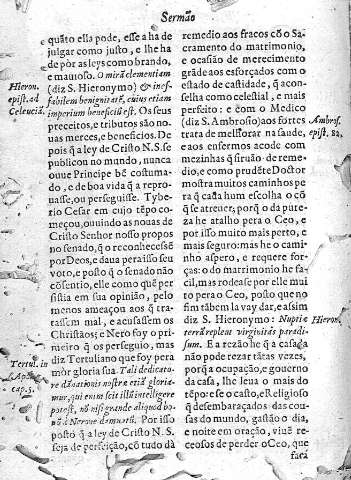 Sermão
quãto ella pode, esse a ha de
julgar como justo, e lhe ha
de pòr as leys como brando,
e mauioso. O mirã clementiam
(diz S. Hieronymo) & inef-
fabilem benignitatẽ, cuius etiam
imperium beneficiũ est. Os seus
preceitos, e tributos são no-
uas merces, e beneficios. De
pois q̃ a ley de Cristo N. S. se
publicou no mundo, nunca
ouue Principe bẽ costuma-
do, e de boa vida q̃ a repro-
uasse, ou perseguisse. Tybe-
rio Cesar em cujo tẽpo co-
meçou, ouuindo as nouas de
Cristo Senhor nosso propos
no senado, q̃ o reconhecesẽ
por Deos, e daua pera isso seu
voto, e posto q̃ o senado não
cõsentio, elle como quẽ per
sistia em sua opinião, pelo
menos ameaçou aos q̃ tra-
tassem mal, e acusassem os
Christãos; e Nero foy o pri-
meiro q̃ os perseguio, mas
diz Tertuliano que foy pera
mòr gloria sua. Tali dedicato-
re dãnationis nostræ etiã gloria-
mur, qui enim scit illũ intelligere
potest, nõ nisi grande aliquod bo-
nũ à Nerone dãnatũ. Por isso
posto q̃ a ley de Cristo N. S.
seja de perfeição, cõ tudo dà
Hieron.
epist. ad
Celeuciã.
Tertul. in
Apol.
cap. 5.
remedio aos fracos cõ o Sa-
cramento do matrimonio,
e ocasião de merecimento
grãde aos esforçados com o
estado de castidade, q̃ acon-
selha como celestial, e mais
perfeito: e com o Medico
(diz S. Ambrosio) aos fortes
trata de melhorar na saude,
aos enfermos acode com
mezinhas q̃ siruão de reme-
dio, e como prudẽte Doctor
mostra muitos caminhos pe
ra q̃ cada hum escolha o cõ
q̃ se atreuer; porq̃ o da pure-
za he atalho pera o Ceo, e
por isso muito mais perto, e
mais seguro: mas he o cami-
nho aspero, e requere for-
ças: o do matrimonio he fa-
cil, mas rodease por elle mui
to pera o Ceo, posto que no
fim tãbem la vay dar, e assim
diz S. Hieronymo: Nuptiæ
terrã replent virginitas paradi-
sum. E a rezão he q̃ a casada
não pode rezar tãtas vezes,
porq̃ a ocupação, e gouerno
da casa, lhe leua o mais do
tẽpo: e se o casto, e Religioso
q̃ desembaraçados das cou-
sas do mundo, gastão o dia,
e noite em oração, viuẽ re-
ceosos de perder o Ceo, que
Ambros.
epist. 82.
Hieron.
farà